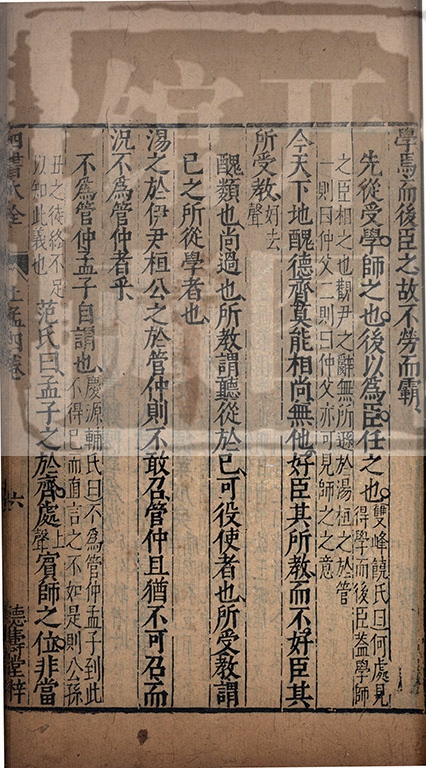 學焉而後臣之故不勞而霸
先從受學師之也後以為臣任之也雙峰饒氏曰何處見
得學而後臣蓋學師
之臣相之也觀尹之辭無所遜於湯桓之於管
一則曰仲父二則曰仲父亦可見師之之意
今天下地醜德齊莫能相尚無他好臣其所教而不好臣其
所受教好去
聲
醜類也尚過也所教謂聽從於己可役使者也所受教謂
己之所從學者也
湯之於伊尹桓公之於管仲則不敢召管仲且猶不可召而
況不為管仲者乎
不為管仲孟子自謂也慶源輔氏曰不為管仲孟子到此
不得已而直言之不如是則公孫
丑之徒終不足
以知此義也
范氏曰孟子之於齊處上
聲
賓師之位非當
四書大全
上孟四卷
六
德壽堂梓